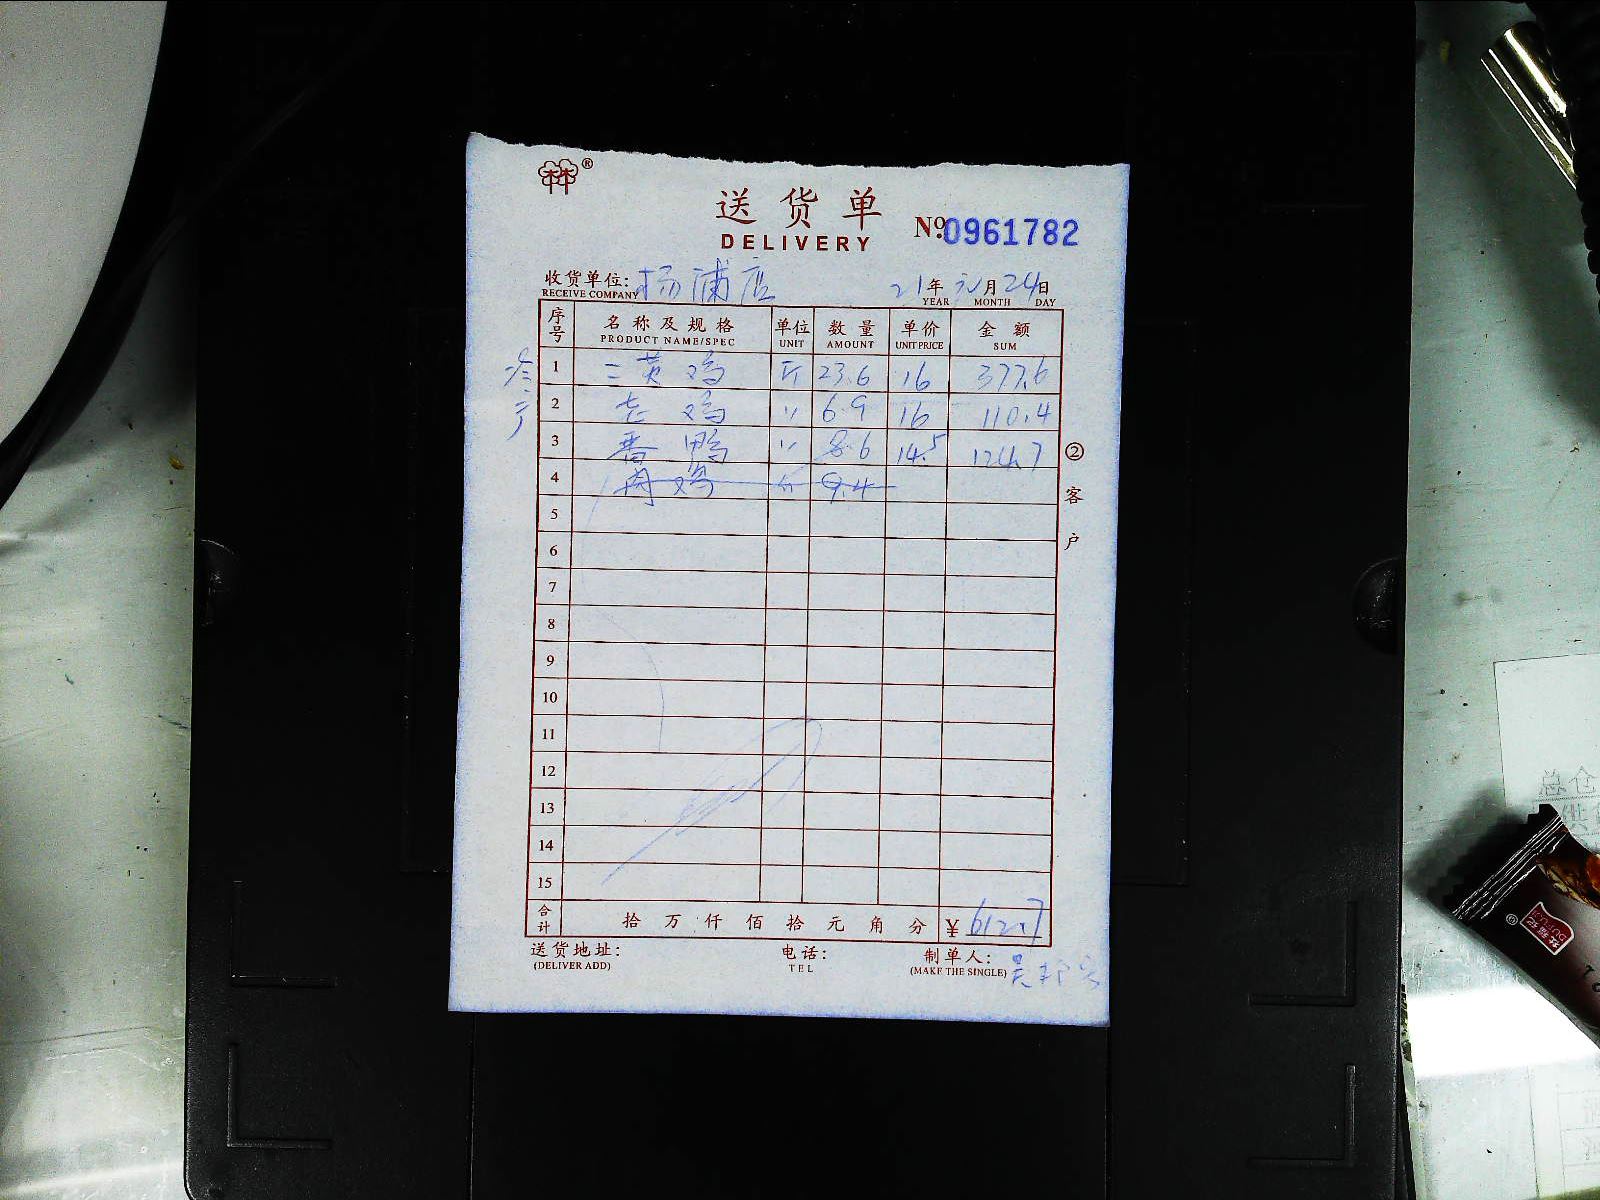 林®
送货单
DELIVERY
№ 0961782
收货单位: 杨浦店
RECEIVE COMPANY
21年 月24日
YEAR MONTH DAY
序号 名称及规格 单位 数量 单价 金额
PRODUCT NAME/SPEC UNIT AMOUNT UNIT PRICE SUM
1 三黄鸡 斤 23.6 16 377.6
2 老鸡 〃 6.9 16 110.4
3 番鸭 〃 8.6 14.5 124.7
4 鸡 斤 9.4
5
6
7
8
9
10
11
12
13
14
15
合计 拾万仟佰拾元角分 ¥ 612.7
送货地址: 电话: 制单人: 吴
(DELIVER ADD) TEL (MAKE THE SINGLE)
②客户
总仓